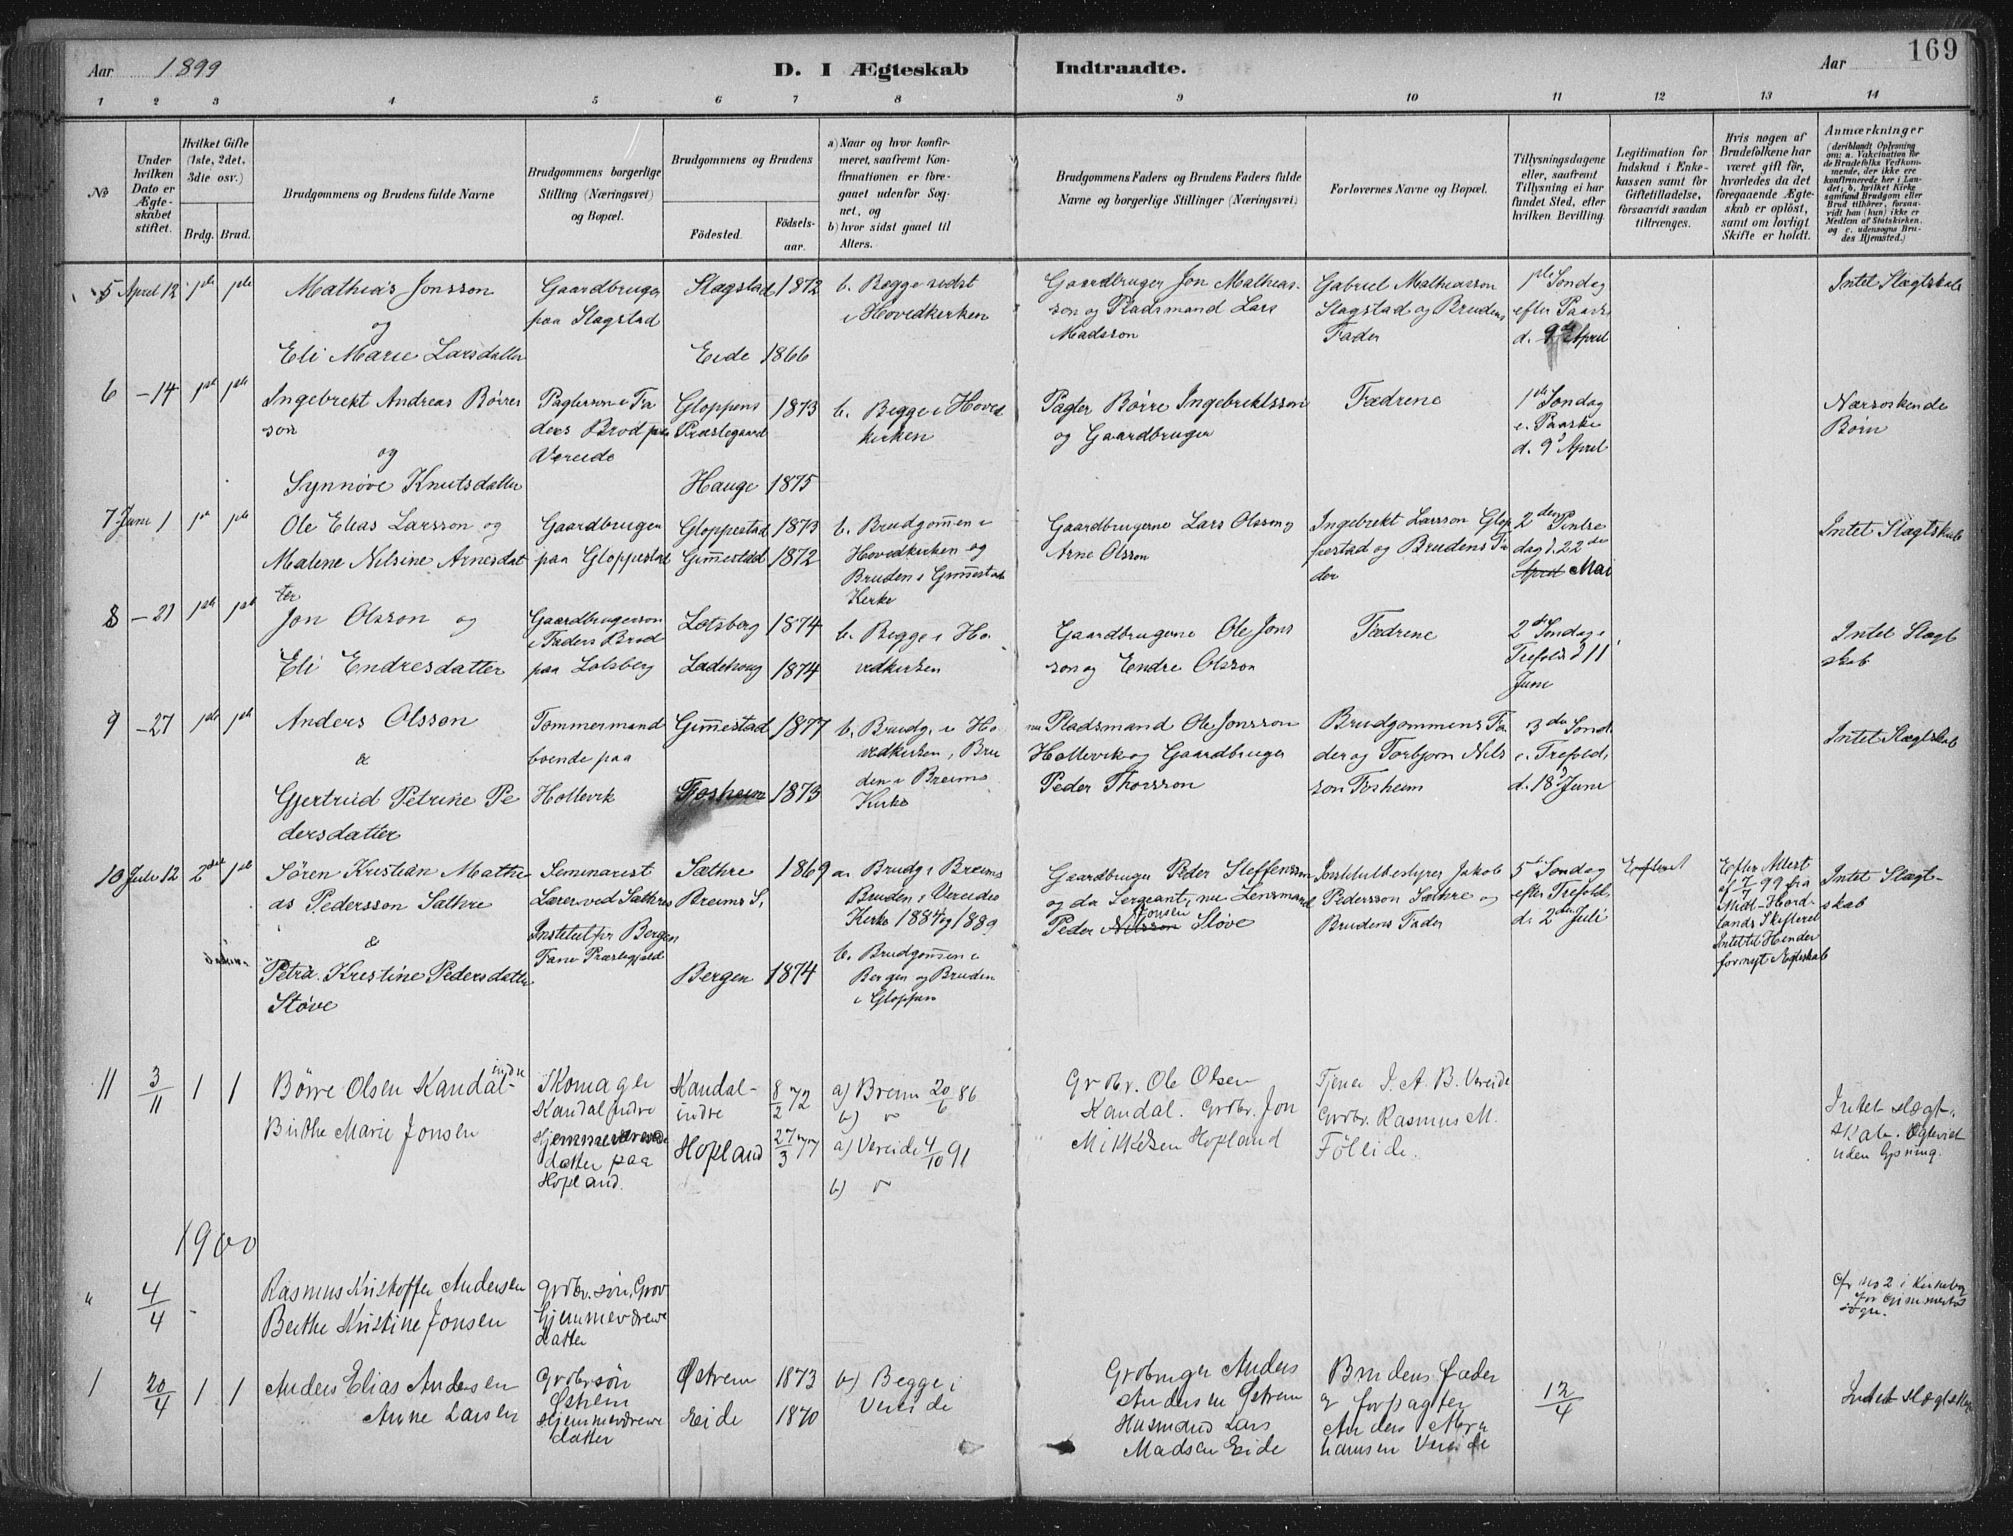 Aar 1899
D. I Ægteskab Indtraadte.
Aar
169
1 2 3 4 5 6 7 8 9 10 11 12 13 14
No
Under hvilken Dato er Ægteskabet stiftet.
Hvilket Gifte (1ste, 2det, 3die osv.)
Brdg. Brud.
Brudgommens og Brudens fulde Navne
Brudgommens borgerlige Stilling (Næringsvei) og Bopæl.
Brudgommens og Brudens
Födested.
Födselsaar.
a) Naar og hvor konfirmeret, saafremt Konfirmationen er foregaaet udenfor Sognet, og
b) hvor sidst gaaet til Alters.
Brudgommens Faders og Brudens Faders fulde Navne og borgerlige Stillinger (Næringsvei)
Forlovernes Navne og Bopæl.
Tillysningsdagene eller, saafremt Tillysning ei har fundet Sted, efter hvilken Bevilling.
Legitimation for Indskud i Enkekassen samt for Giftetilladelse, forsaavidt saadan tiltrænges.
Hvis nogen af Brudefolkene har været gift för, hvorledes da det foregaaende Ægteskab er oplöst, samt om lovligt Skifte er holdt.
Anmærkninger (deriblandt Oplysning om: a. Vakcination for de Brudefolks Vedkommende, der ikke ere konfirmerede her i Landet; b. hvilket Kirkesamfund Brudgom eller Brud tilhörer, forsaavidt han (hun) ikke er Medlem af Statskirken, og c. udensogns Brudes Hjemsted.)
5 April 12 1ste 1ste
Mathias Jonsson
og
Eli Marie Larsdatter
Gaardbruger
paa Slagstad
Slagstad 1872
Eide 1866
b. Begge sidst
i Hovedkirken
Gaardbruger Jon Mathias
son og Pladsmand Lars
Madsson
Gabriel Mathiasson
Slagstad og Brudens
Fader
1ste Søndag
efter Paaske
d. 9de April
Intet Slægtskab
6 -14 1ste 1ste
Ingebrekt Andreas Börres
son
og
Synnöve Knutsdatter
Pagterson i Fa
ders Brød paa
Vereide
Gloppens
Præstegaard 1873
Hauge 1875
b. Begge i Hoved
kirken
Pagter Börre Ingebrektsson
og Gaardbruger
Fædrene
1ste Söndag
e. Paaske
d. 9d April
Næssöskende
Börn
7 Juni 1 1ste 1ste
Ole Elias Larsson og
Malene Nilsine Arnesdat
ter
Gaardbruger
paa Gloppestad
Gloppestad 1873
Gimestad 1872
b. Brudgommen i
Hovedkirken og
Bruden i Gimestad
Kirke
Gaardbrugerne Lars Olsson og
Arne Olsson
Ingebrekt Larsson Glop
pestad og Brudens Fa
der
2den Pintse
dag d. 22de
April Mai
Intet Slægtskab
8 -21 1ste 1ste
Jon Olsson og
Eli Endresdatter
Gaardbrugerson
i Faders Brød
paa Lotsberg
Lotsberg 1874
Ladehoug 1874
b. Begge i Ho
vedkirken
Gaardbrugerne Ole Jons
son og Endre Olsson
Fædrene
2den Søndag i
Trefold. d 11
Juni
Intet Slægt
skab
9 -27 1ste 1ste
Anders Olsson
&
Gjertrud Petrine Pe
dersdatter
Tømmermand
boende paa
Hollevik
Gimestad 1877
Fosheim 1873
b. Brudg. i Ho
vedkirken, Bru
den i Breims
Kirke
Pladsmand Ole Jonsson
Hollevik og Gaardbruger
Peder Thorsson
Brudgommens Fa
der og Torbjørn Nils
son Fosheim
3die Sønd.
e. Trefold.
d. 18d Juni
Intet Slægtskab
10 Juli 12 2det 1ste
Sören Kristian Mathi
as Pedersson Sæthre
&
Petra Kristine Pedersdatter
Stöve
Seminarist
Lærer ved Sæthres
Institut for Bergen
Fane Præstegjeld
Sæthre
Breims S. 1869
Bergen 1874
a. Brudg. i Breims
Bruden i Vereides
Kirke 1884 og 1889
b. Brudgommen i
Bergen og Bruden
i Gloppen
Gaardbruger Peder Steffensson
og da Sergeant, nu Lensmand
Jonsen
Peder Nilsson Stöve
Institutbestyrer Jakob
Pedersson Sæthre og
Brudens Fader
5te Søndag
efter Trefold.
d. 2den Juli
Efter Attest
af 7/7 99 fra
Midt-Hord
lands Skifteret
Intet til Hinder
for nyt Ægteskab
Intet Slægt-
skab
11 3/11 1 1
Börre Olsen Kandal-
indre
Birthe Marie Jonsen
Skomager
Kandal indre
Hjemmeværende
datter paa
Hopland.
Kandal-
indre 8/2 72
Hopland 27/3 77
a) Breim 20/6 86
b) "
a) Vereide 4/10 91
b) "
Grdbr. Ole Olsen
Kandal. Grdbr. Jon
Mikkelsen Hopland
Tjener J. A. B. Vereide
Grdbr. Rasmus M.
Föleide.
Intet slægt-
skab. Ægteviet
uden lysning.
1900
" 4/4 -
Rasmus Kristoffer Andersen
Berthe Kristine Jonsen
Grdbr. søn, Grov
Hjemmeværende
datter
Cfr. No 2 i Kirkebog
for Gimmestad
sogn.
1 20/4 1 1
Anders Elias Andersen
Anne Larsen
Grdbr.søn
Østrem
Hjemmeværende
datter
Østrem 1873
Eide 1870
b) Begge i
Vereide
Grdbruger Anders
Andersen Østrem
Husmand Lars
Madsen Eide
Brudens fader
og forpagter
Anders Abra
hamsen Vereide
12/4
Intet slægtskab